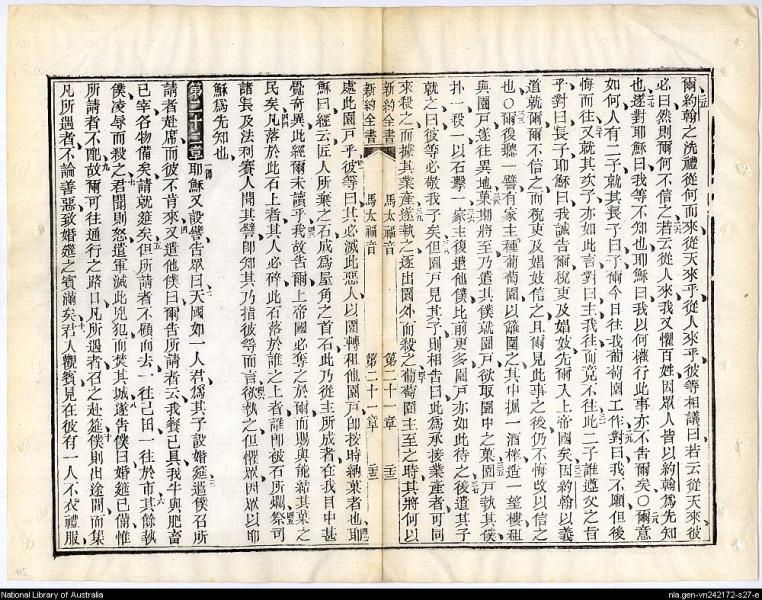 爾約翰之洗禮從何而來從天來乎從人來乎彼等相議曰若云從天來彼
必曰然則爾何不信之若云從人來我又懼百姓因眾人皆以約翰爲先知
也遂對耶穌曰我等不知也耶穌曰我以何權行此事亦不告爾矣○爾意
如何人有二子就其長子曰子爾今日往我葡萄園工作對曰我不願但後
悔而往又就其次子亦如此言對曰主我往而竟不往此二子誰遵父之旨
乎對曰長子耶穌曰我誠告爾稅吏及娼妓先爾入上帝國矣因約翰以義
道就爾爾不信之而稅吏及娼妓信之且爾見此事之後仍不悔改以信之
也○爾復聽一譬有家主種葡萄園以籬圍之其中掘一酒榨造一望樓租
與園戶遂往異地菓期將至乃遣其僕就園戶欲取園中之菓園戶執其僕
扑一殺一以石擊一家主復遣他僕比前更多園戶亦如此待之後遣其子
就之曰彼等必敬我子矣但園戶見其子則相告曰此爲承接業產者可同
來殺之而據其業產遂執之逐出園外而殺之葡萄園主至之時其將何以
新約全書 馬太福音 第二十一章
新約全書 馬太福音 第二十一章
處此園戶乎彼等曰其必滅此惡人以園轉租他園戶卽按時納菓者也耶
穌曰經云匠人所棄之石成爲屋角之首石此乃從主所成者在我目中甚
覺奇異此經爾未讀乎我故告爾上帝國必奪之於爾而賜與能結其菓之
民矣凡落於此石上者其人必碎此石落於誰之上者誰卽被石所爛祭司
諸長及法利賽人聞其譬卽知其乃指彼等而言欲執之但懼眾因眾以耶
穌爲先知也
第二十二章耶穌又設譬告眾曰天國如一人君爲其子設婚筵遣僕召所
請者赴席而彼不肯來又遣他僕曰爾告所請者云我餐已具我牛與肥畜
已宰各物備矣請就筵矣但所請者不顧而去一往己田一往於市其餘執
僕凌辱而殺之君聞則怒遣軍滅此兇犯而焚其城遂告僕曰婚筵已備惟
所請者不配故爾可往通行之路口凡所遇者召之赴筵僕則出途間而集
凡所遇者不論善惡致婚筵之賓滿矣君人觀賓見在彼有一人不衣禮服
National Library of Australia
nla.gen-vn242172-s27-e